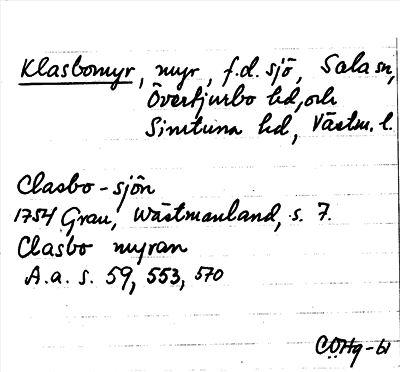 Klasbomyr, myr, f.d. sjö, Sala sn,
Övertjurbo hd, och
Simtuna hd, Västm. l.
Clasbo-sjön
1754 Grau, Wästmanland, s. 7.
Clasbo myran
A.a. s. 59, 553, 570